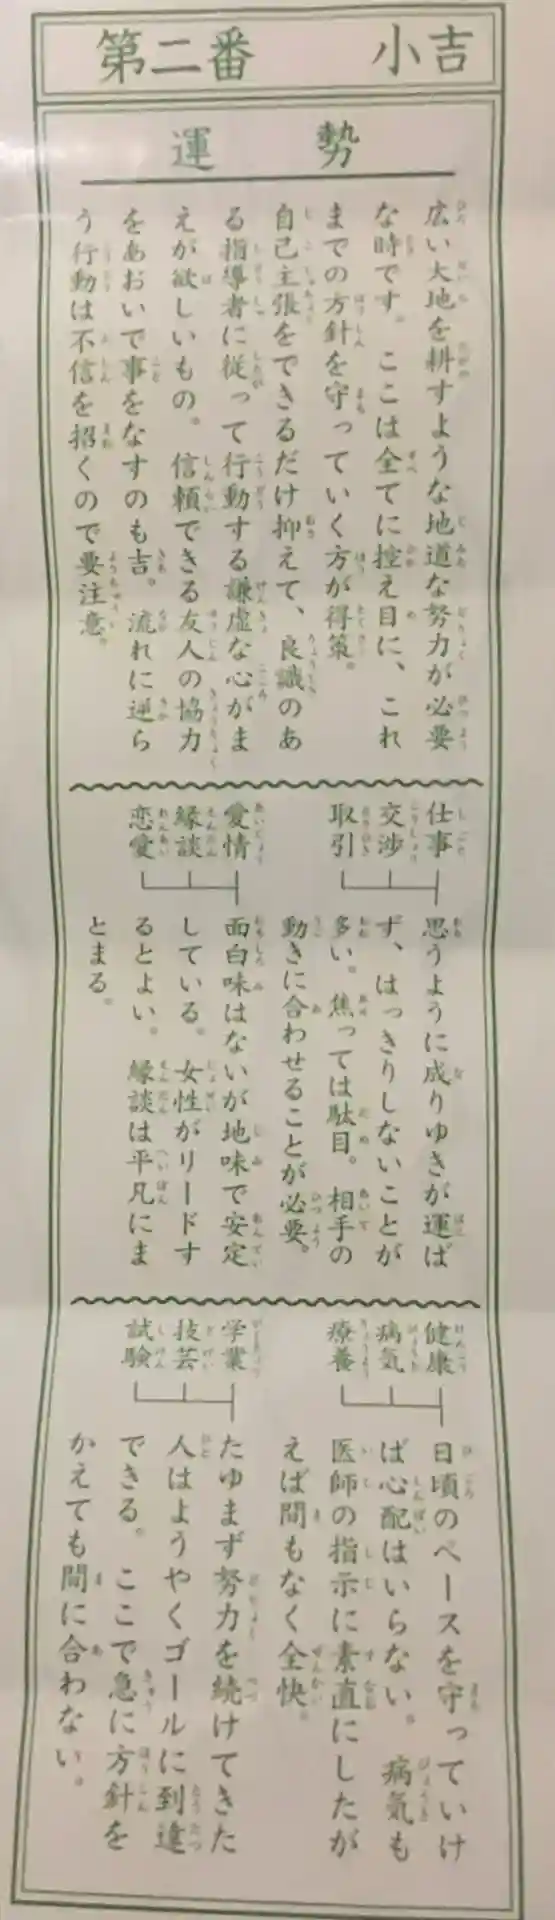 第二番 小吉
運勢
広い大地を耕すような地道な努力が必要
な時です。ここは全てに控え目に、これ
までの方針を守っていく方が得策。
自己主張をできるだけ抑えて、良識のあ
る指導者に従って行動する謙虚な心がま
えが欲しいもの。信頼できる友人の協力
をあおいで事をなすのも吉。流れに逆ら
う行動は不信を招くので要注意。
仕事
交渉
取引
思うように成りゆきが運ば
ず、はっきりしないことが
多い。焦っては駄目。相手の
動きに合わせることが必要。
愛情
縁談
恋愛
面白味はないが地味で安定
している。女性がリードす
るとよい。縁談は平凡にま
とまる。
健康
病気
療養
日頃のペースを守っていけ
ば心配はいらない。病気も
医師の指示に素直にしたが
えば間もなく全快。
学業
技芸
試験
たゆまず努力を続けてきた
人はようやくゴールに到達
できる。ここで急に方針を
かえても間に合わない。